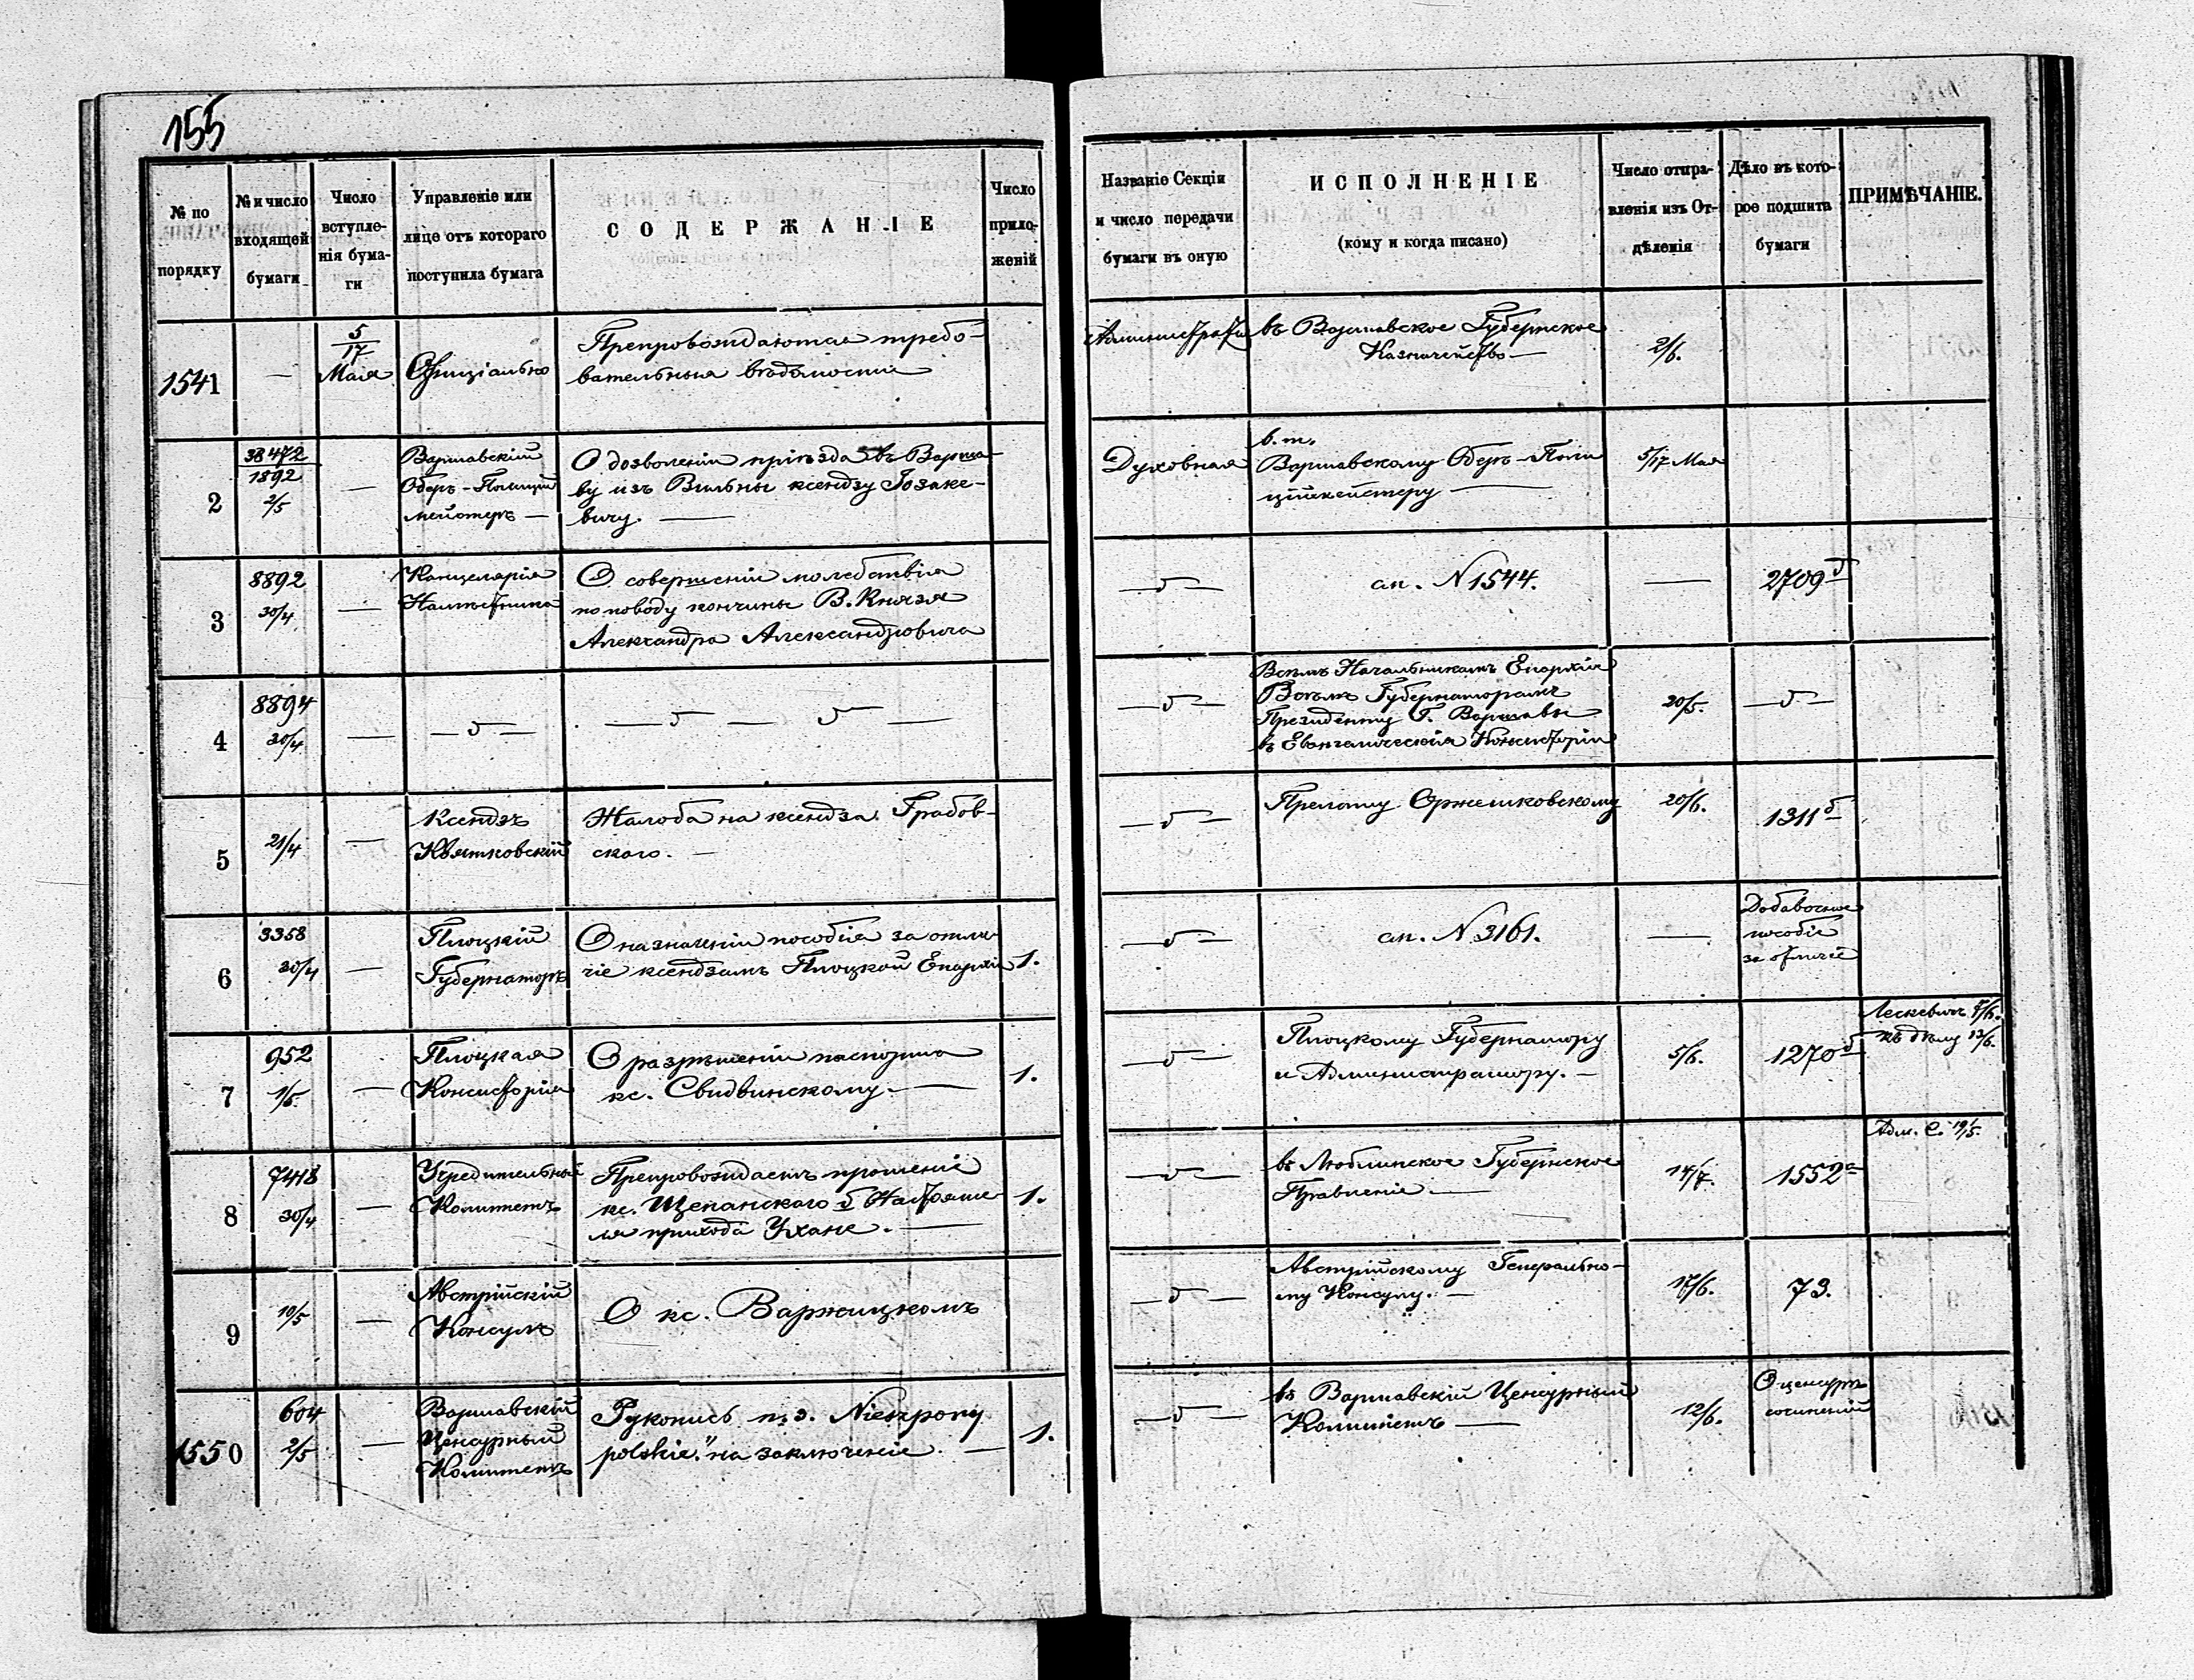 155
№ по порядку
№ и число входящей бумаги
Число вступле-нія бума-ги
Управленіе или лице отъ котораго поступила бумага
СОДЕРЖАНІЕ
Число прило-женій
Названіе Секціи и число передачи бумаги въ оную
ИСПОЛНЕНІЕ
(кому и когда писано)
Число отпра-вленія изъ От-дѣленія
Дѣло въ кото-рое подшита бумаги
ПРИМѢЧАНІЕ.
1541
—
5/17 Мая
Офиціально
Препровождаются требо-
вательныя вѣдомости
въ Варшавское Губернское
Казначейство —
2/6.
2
38472/1892
2/5
—
Варшавскій
Оберъ-Полицій
мейстеръ —
О дозволеніи пріѣзда въ Варша-
ву изъ Вильны ксендзу Іозаке-
вичу. —
Духовная
в. т.
Варшавскому Оберъ-Поли
ціймейстеру —
5/17 Мая
3
8892
30/4
—
Канцелярія
Намѣстника
О совершеніи молебствія
по поводу кончины В. Князя
Александра Александровича
—δ—
сл. N 1544.
—
2709 б
4
8894
30/4
—
—δ—
—δ— δ —
—δ—
Всѣмъ Начальникамъ Епархій
Всѣмъ Губернаторамъ
Президенту Г. Варшавы
въ Евангелическія Консисторіи
20/5.
—δ—
5
21/4
—
Ксендзъ
Квятковскій
Жалоба на ксендза Грабов-
скаго. —
—δ—
Прелату Оржешковскому
20/6.
1311 б
6
3358
30/4
—
Плоцкій
Губернаторъ
О назначеніи пособія за отли
чіе ксендзамъ Плоцкой Епархіи
1.
—δ—
сл. N 3161.
—
Добавочное
пособіе
за отличіе
7
952
1/5
—
Плоцкая
Консисторія
О разрѣшеніи паспорта
кс. Свидвинскому. —
1.
—δ—
Плоцкому Губернатору
и Администратору. —
5/6.
1270 б
къ дѣлу 13/6.
8
7418
30/4
—
Учредительный
Комитетъ
Препровождаетъ прошеніе
кс. Щепанскаго б Настояте
ля прихода Ухане. —
1.
—δ—
въ Люблинское Губернское
Правленіе —
14/7.
1552 а
Адм. С. 19/5.
9
10/5
—
Австрійскій
Консулъ
О кс. Варжицкомъ
—δ—
Австрійскому Генерально-
му Консулу. —
17/6.
73.
1550
604
2/5
—
Варшавскій
Ценсурный
Комитетъ
Рукопись п. з. Nieszpory
polskie." на заключеніе. —
1.
—δ—
въ Варшавскій Ценсурный
Комитетъ —
12/6.
О ценсурѣ
сочиненій